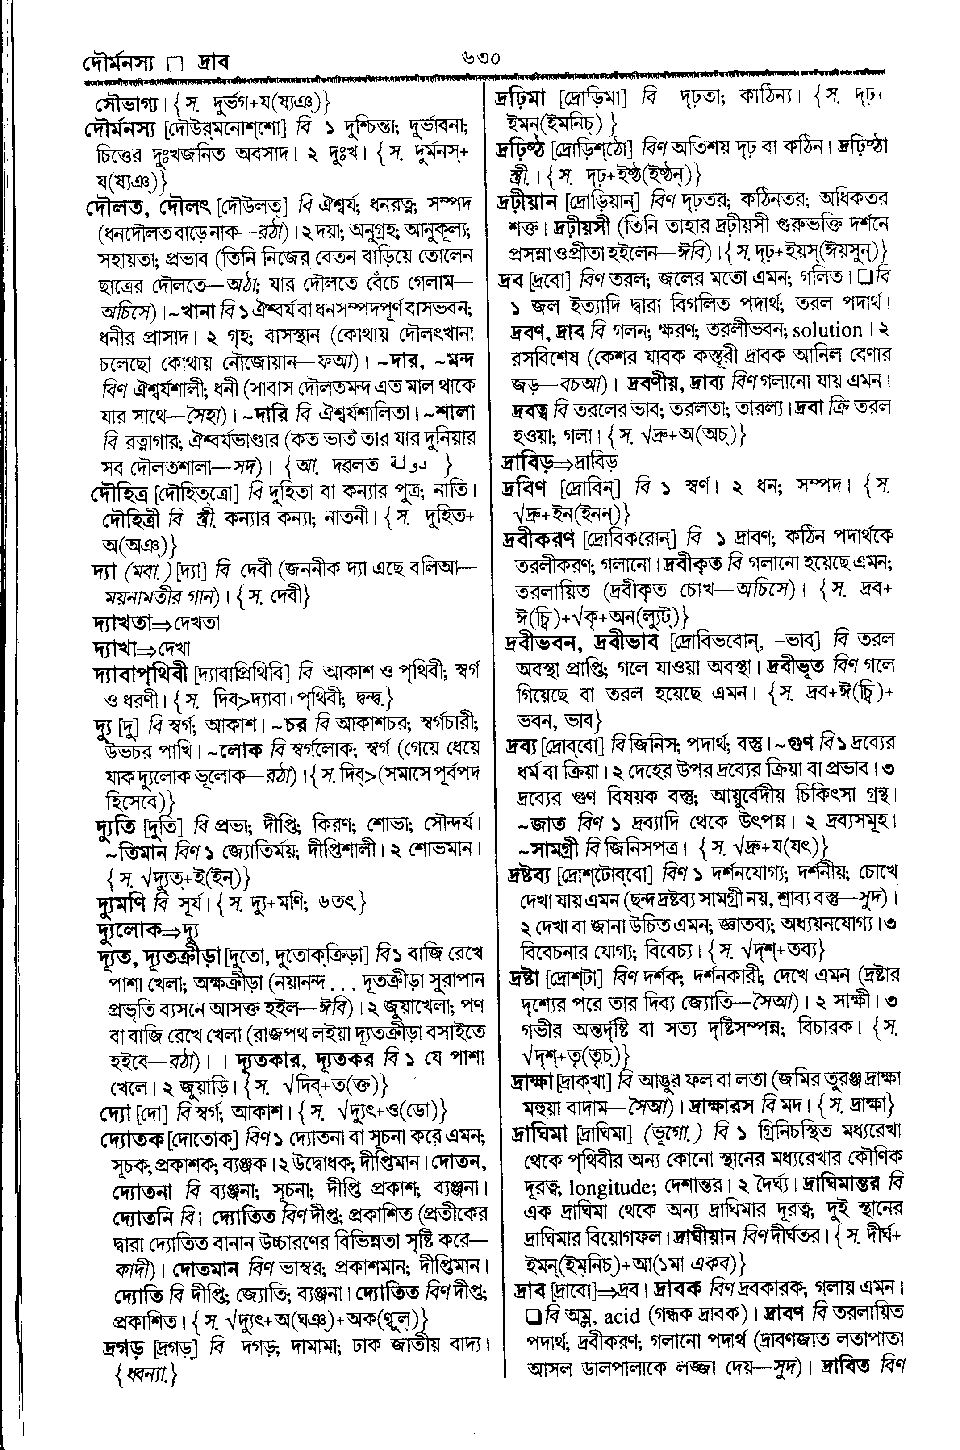 দৌর্মনস্য □ দ্রাব
৬৩০
সৌভাগ্য। {স. দুর্ভগ+য(ষ্যঞ)}
দৌর্মনস্য [দৌউর্‌মনোশ্‌শো] বি ১ দুশ্চিন্তা; দুর্ভাবনা;
চিত্তের দুঃখজনিত অবসাদ। ২ দুঃখ। {স. দুর্মনস্+
য(ষ্যঞ)}
দৌলত, দৌলৎ [দৌউলত্] বি ঐশ্বর্য; ধনরত্ন; সম্পদ
(ধনদৌলত বাড়ে নাক –রঠা)। ২ দয়া; অনুগ্রহ; আনুকূল্য;
সহায়তা; প্রভাব (তিনি নিজের বেতন বাড়িয়ে তোলেন
ছাত্রের দৌলতে—অঠা; যার দৌলতে বেঁচে গেলাম—
অচিসে)। ~খানা বি ১ ঐশ্বর্য বা ধনসম্পদপূর্ণ বাসভবন;
ধনীর প্রাসাদ। ২ গৃহ; বাসস্থান (কোথায় দৌলৎখানা;
চলেছো কোথায় নৌজোয়ান—ফআ)। ~দার, ~মন্দ
বিণ ঐশ্বর্যশালী; ধনী (সাবাস দৌলতমন্দ এত মাল থাকে
যার সাথে—সৈহা)। ~দারি বি ঐশ্বর্যশালিতা। ~শালা
বি রত্নাগার; ঐশ্বর্যভাণ্ডার (কত ভার্ত তার যার দুনিয়ার
সব দৌলতশালা—সদ)। {আ. দৱলত دولة }
দৌহিত্র [দৌহিত্‌ত্রো] বি দুহিতা বা কন্যার পুত্র; নাতি।
দৌহিত্রী বি স্ত্রী. কন্যার কন্যা; নাতনী। {স. দুহিতৃ+
অ(অঞ)}
দ্যা (মবা.) [দ্যা] বি দেবী (জননীক দ্যা এছে বলিআ—
ময়নামতীর গান)। {স. দেবী}
দ্যাখতা⇒দেখতা
দ্যাখা⇒দেখা
দ্যাবাপৃথিবী [দ্যাবাপ্রিথিবি] বি আকাশ ও পৃথিবী; স্বর্গ
ও ধরণী। {স. দিব্>দ্যাবা+পৃথিবী; দ্বন্দ্ব.}
দ্যু [দু] বি স্বর্গ; আকাশ। ~চর বি আকাশচর; স্বর্গচারী;
উভচর পাখি। ~লোক বি স্বর্গলোক; স্বর্গ (গেয়ে ধেয়ে
যাক দ্যুলোক ভূলোক—রঠা)। {স. দিব্>(সমাসে পূর্বপদ
হিসেবে)}
দ্যুতি [দুতি] বি প্রভা; দীপ্তি; কিরণ; শোভা; সৌন্দর্য।
~তিমান বিণ ১ জ্যোতির্ময়; দীপ্তিশালী। ২ শোভমান।
{স. √দ্যুত্+ই(ইন্)}
দ্যুমণি বি সূর্য। {স. দ্যু+মণি; ৬তৎ}
দ্যুলোক⇒দ্যু
দ্যূত, দ্যূতক্রীড়া [দুতো, দুতোক্‌ক্রিড়া] বি ১ বাজি রেখে
পাশা খেলা; অক্ষক্রীড়া (নয়ানন্দ ... দূতক্রীড়া সুরাপান
প্রভৃতি ব্যসনে আসক্ত হইল—ঈবি)। ২ জুয়াখেলা; পণ
বা বাজি রেখে খেলা (রাজপথ লইয়া দ্যূতক্রীড়া বসাইতে
হইবে—রঠা)। । দ্যূতকার, দ্যূতকর বি ১ যে পাশা
খেলে। ২ জুয়াড়ি। {স. √দিব্+ত(ক্ত)}
দ্যো [দো] বি স্বর্গ; আকাশ। {স. √দ্যুৎ+ও(ডো)}
দ্যোতক [দোতোক্] বিণ ১ দ্যোতনা বা সূচনা করে এমন;
সূচক; প্রকাশক; ব্যঞ্জক। ২ উদ্বোধক; দীপ্তিমান। দ্যোতন,
দ্যোতনা বি ব্যঞ্জনা; সূচনা; দীপ্তি প্রকাশ; ব্যঞ্জনা।
দ্যোতনি বি। দ্যোতিত বিণ দীপ্ত; প্রকাশিত (প্রতীকের
দ্বারা দ্যোতিত বানান উচ্চারণের বিভিন্নতা সৃষ্টি করে—
কাদী)। দ্যোতমান বিণ ভাস্বর; প্রকাশমান; দীপ্তিমান।
দ্যোতি বি দীপ্তি; জ্যোতি; ব্যঞ্জনা। দ্যোতিত বিণ দীপ্ত;
প্রকাশিত। {স. √দ্যুৎ+অ(ঘঞ)+অক(ণ্বুল)}
দ্রগড় [দ্রগড়্] বি দগড়; দামামা; ঢাক জাতীয় বাদ্য।
{ধ্বন্যা.}
দ্রঢ়িমা [দ্রোড়িমা] বি দৃঢ়তা; কাঠিন্য। {স. দৃঢ়+
ইমন্(ইমনিচ)}
দ্রঢ়িষ্ঠ [দ্রোড়িশ্‌ঠো] বিণ অতিশয় দৃঢ় বা কঠিন। দ্রঢ়িষ্ঠা
স্ত্রী.। {স. দৃঢ়+ইষ্ঠ(ইষ্ঠন্)}
দ্রঢ়ীয়ান [দ্রোড়িয়ান্] বিণ দৃঢ়তর; কঠিনতর; অধিকতর
শক্ত। দ্রঢ়ীয়সী (তিনি তাহার দ্রঢ়ীয়সী গুরুভক্তি দর্শনে
প্রসন্না ও প্রীতা হইলেন—ঈবি)। {স. দৃঢ়+ইয়স্(ঈয়সুন্)}
দ্রব [দ্রবো] বিণ তরল; জলের মতো এমন; গলিত। ❑ বি
১ জল ইত্যাদি দ্বারা বিগলিত পদার্থ; তরল পদার্থ।
দ্রবণ, দ্রাব বি গলন; ক্ষরণ; তরলীভবন; solution। ২
রসবিশেষ (কেশর যাবক কস্তুরী দ্রাবক আনিল বেণার
জড়—বচআ)। দ্রবণীয়, দ্রাব্য বিণ গলানো যায় এমন।
দ্রবত্ব বি তরলের ভাব; তরলতা; তারল্য। দ্রবা ক্রি তরল
হওয়া; গলা। {স. √দ্রু+অ(অচ্)}
দ্রাবিড়⇒দ্রাবিড়
দ্রবিণ [দ্রোবিন্] বি ১ স্বর্ণ। ২ ধন; সম্পদ। {স.
√দ্রু+ইন(ইনন্)}
দ্রবীকরণ [দ্রোবিকরোন্] বি ১ দ্রাবণ; কঠিন পদার্থকে
তরলীকরণ; গলানো। দ্রবীকৃত বি গলানো হয়েছে এমন;
তরলায়িত (দ্রবীকৃত চোখ—অচিসে)। {স. দ্রব+
ঈ(চ্বি)+√কৃ+অন(ল্যুট্)}
দ্রবীভবন, দ্রবীভাব [দ্রোবিভবোন্, –ভাব্] বি তরল
অবস্থা প্রাপ্তি; গলে যাওয়া অবস্থা। দ্রবীভূত বিণ গলে
গিয়েছে বা তরল হয়েছে এমন। {স. দ্রব+ঈ(চ্বি)+
ভবন, ভাব}
দ্রব্য [দ্রোব্‌বো] বি জিনিস; পদার্থ; বস্তু। ~গুণ বি ১ দ্রব্যের
ধর্ম বা ক্রিয়া। ২ দেহের উপর দ্রব্যের ক্রিয়া বা প্রভাব। ৩
দ্রব্যের গুণ বিষয়ক বস্তু; আয়ুর্বেদীয় চিকিৎসা গ্রন্থ।
~জাত বিণ ১ দ্রব্যাদি থেকে উৎপন্ন। ২ দ্রব্যসমূহ।
~সামগ্রী বি জিনিসপত্র। {স. √দ্রু+য(যৎ)}
দ্রষ্টব্য [দ্রোশ্‌টোব্‌বো] বিণ ১ দর্শনযোগ্য; দর্শনীয়; চোখে
দেখা যায় এমন (ছন্দ দ্রষ্টব্য সামগ্রী নয়, শ্রাব্য বস্তু—সুদ)।
২ দেখা বা জানা উচিত এমন; জ্ঞাতব্য; অধ্যয়নযোগ্য। ৩
বিবেচনার যোগ্য; বিবেচ্য। {স. √দৃশ্+তব্য}
দ্রষ্টা [দ্রোশ্‌টা] বিণ দর্শক; দর্শনকারী; দেখে এমন (দ্রষ্টার
দৃশ্যের পরে তার দিব্য জ্যোতি—সৈআ)। ২ সাক্ষী। ৩
গভীর অন্তর্দৃষ্টি বা সত্য দৃষ্টিসম্পন্ন; বিচারক। {স.
√দৃশ্+তৃ(তৃচ্)}
দ্রাক্ষা [দ্রাক্‌খা] বি আঙুর ফল বা লতা (জমির তুরঞ্জ দ্রাক্ষা
মহুয়া বাদাম—সৈআ)। দ্রাক্ষারস বি মদ। {স. দ্রাক্ষা}
দ্রাঘিমা [দ্রাঘিমা] (ভূগো.) বি ১ গ্রিনিচস্থিত মধ্যরেখা
থেকে পৃথিবীর অন্য কোনো স্থানের মধ্যরেখার কৌণিক
দূরত্ব; longitude; দেশান্তর। ২ দৈর্ঘ্য। দ্রাঘিমান্তর বি
এক দ্রাঘিমা থেকে অন্য দ্রাঘিমার দূরত্ব; দুই স্থানের
দ্রাঘিমার বিয়োগফল। দ্রাঘীয়ান বিণ দীর্ঘতর। {স. দীর্ঘ+
ইমন্(ইমনিচ)+আ(১মা একব)}
দ্রাব [দ্রাবো]⇒দ্রব। দ্রাবক বিণ দ্রবকারক; গলায় এমন।
❑ বি অম্ল, acid (গন্ধক দ্রাবক)। দ্রাবণ বি তরলায়িত
পদার্থ; দ্রবীকরণ; গলানো পদার্থ (দ্রাবণজাত লতাপাতা
আসল ডালপালাকে লজ্জা দেয়—সুদ)। দ্রাবিত বিণ